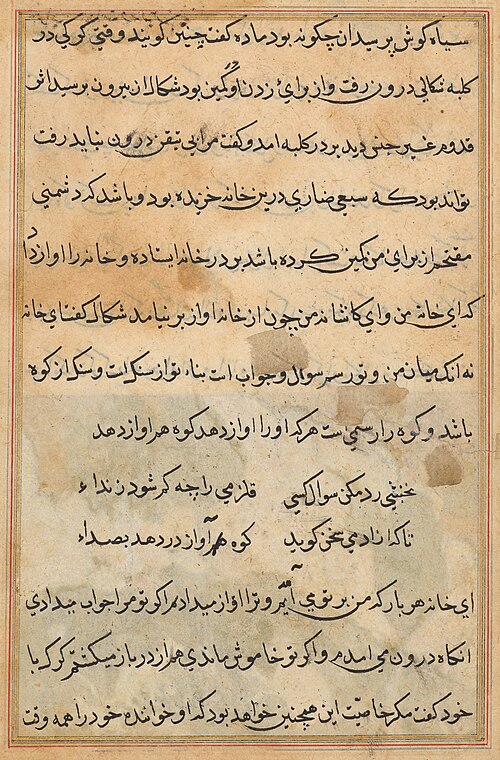 سیاه کوش پرسید ان چکونه بود ماده کفت چنین کویند وقتی کرکی در
کلبه شکالی درون رفت و از برای زدن او کمین بود شکال از بیرون برسید اثر
قدوم غیر جنس دید بر در کلبه امد و کفت مرا بی تیقن درون نباید رفت
تواند بود که سبعی ضاری درین خانه خزیده بود و باشد که دشمنی
مقتحم از برای من کمین کرده باشد بر در خانه ایستاده و خانه را اواز داد
که ای خانه من و ای کاشانه من چون از خانه اواز بر نیامد شکال کفت ای خانه
نه انک میان من و تو رسم سوال و جواب است بناء تو از سنک است و سنک از کوه
باشد و کوه را رسمی ست هر که او را اواز دهد کوه هم اواز دهد
نخشبی رد مکن سوال کسی قلزمی را چه کم شود ز نداء
تا که از ادمی سخن کوید کوه هم آواز در دهد بصداء
ای خانه هر بار که من بر تو می آیم و ترا اواز میدادم اکر تو مرا جواب میدادی
انکاه درون می امدم و اکر تو خاموش ماندی هم از در باز میکشتم کرک با
خود کفت مکر خاصیت این همچنین خواهد بود که او خواننده خود را همه وقت